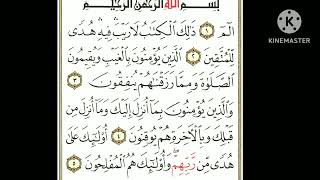 بِسْمِ اللَّهِ الرَّحْمَٰنِ الرَّحِيمِ
الٓمٓ ١ ذَٰلِكَ الْكِتَٰبُ لَا رَيْبَ فِيهِ هُدًى
لِّلْمُتَّقِينَ ٢ الَّذِينَ يُؤْمِنُونَ بِالْغَيْبِ وَيُقِيمُونَ
الصَّلَوٰةَ وَمِمَّا رَزَقْنَٰهُمْ يُنفِقُونَ ٣
وَالَّذِينَ يُؤْمِنُونَ بِمَا أُنزِلَ إِلَيْكَ وَمَا أُنزِلَ مِن
قَبْلِكَ وَبِالْآخِرَةِ هُمْ يُوقِنُونَ ٤ أُولَٰئِكَ عَلَىٰ
هُدًى مِّن رَّبِّهِمْ وَأُولَٰئِكَ هُمُ الْمُفْلِحُونَ ٥
KINEMASTER